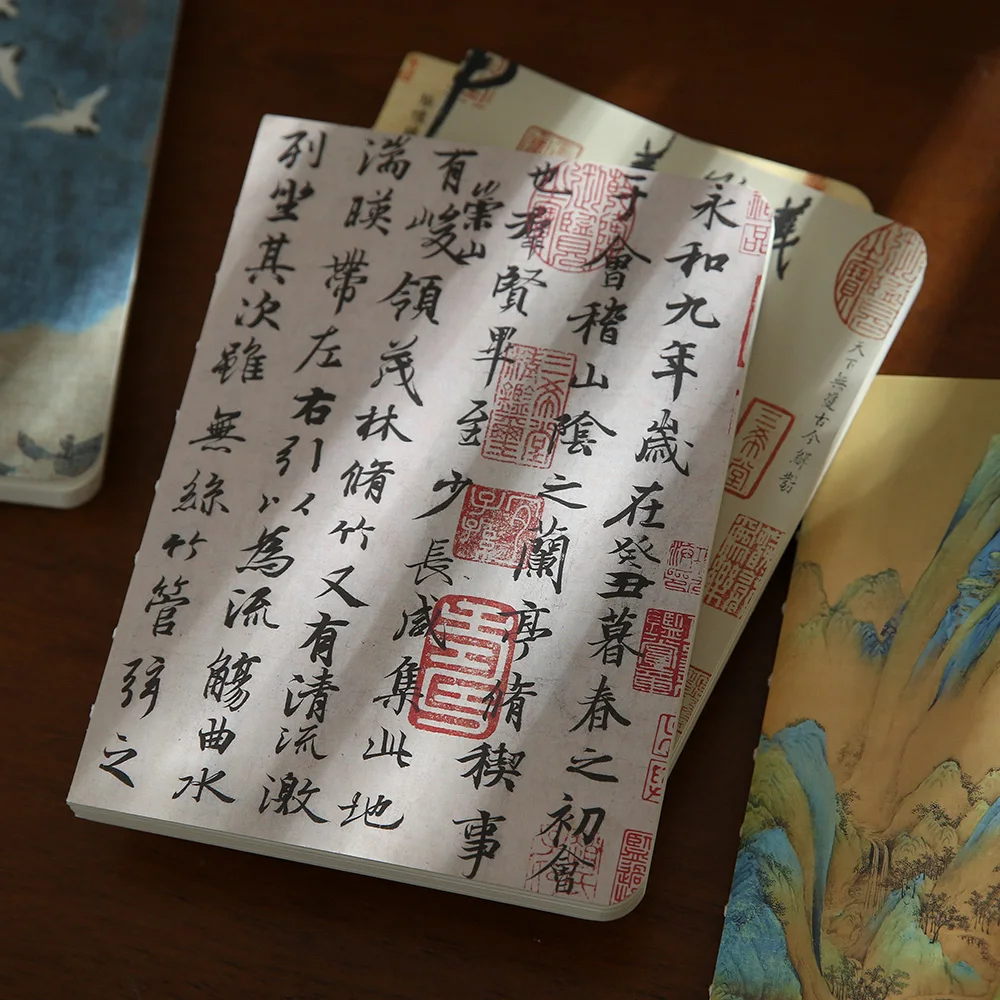 永和九年歲在癸丑暮春之初會
于會稽山陰之蘭亭脩稧事
也羣賢畢至少長咸集此地
有崇山峻領茂林脩竹又有清流激
湍暎帶左右引以為流觴曲水
列坐其次雖無絲竹管弦之
三希堂精鑑璽
宜子孫
天下無雙古今鮮對
三希堂